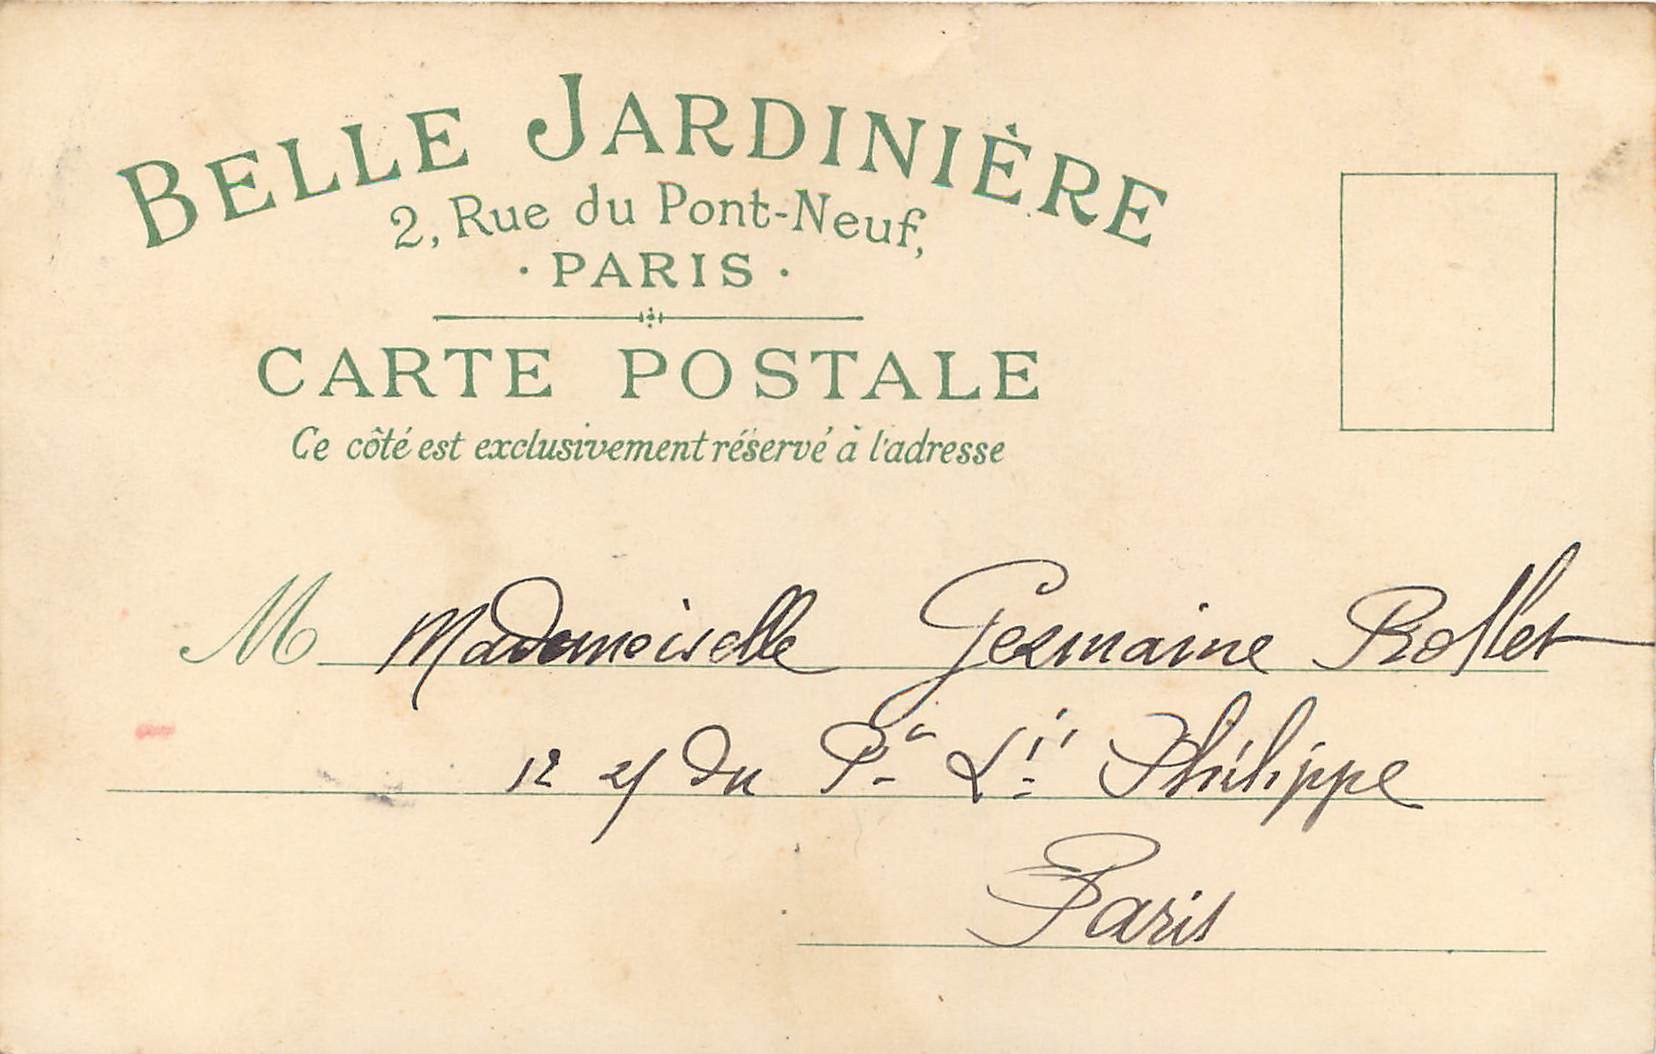 BELLE JARDINIÈRE
2, Rue du Pont-Neuf,
· PARIS ·
CARTE POSTALE
Ce côté est exclusivement réservé à l'adresse
M Mademoiselle Germaine Rollet
12 du Philippe
Paris